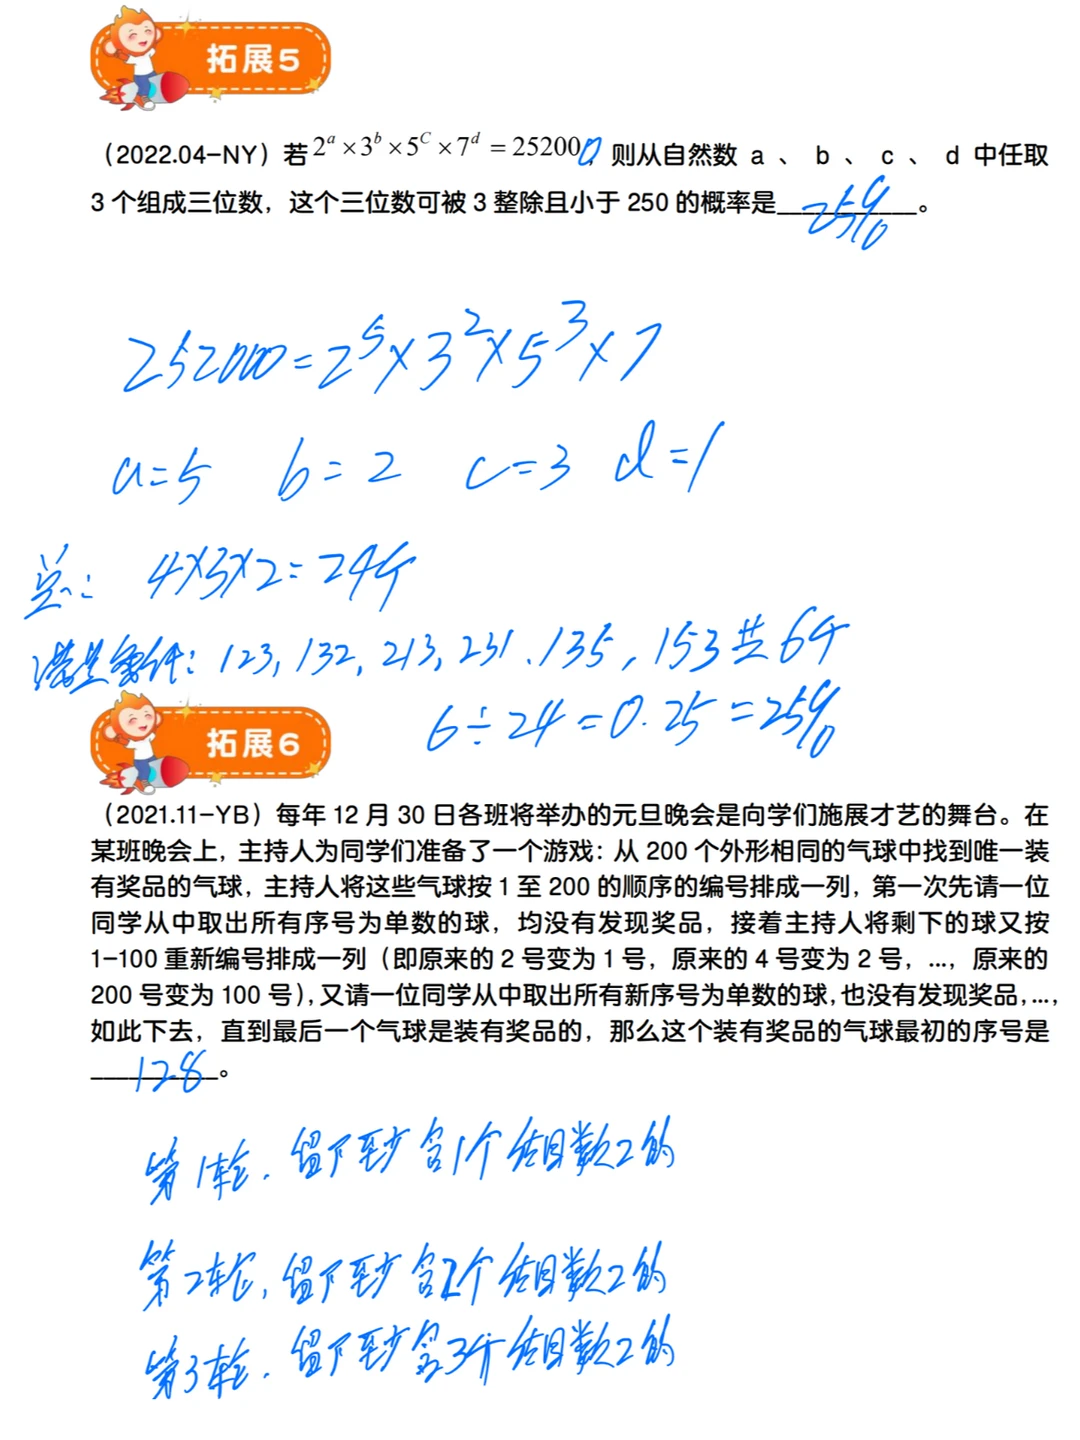 拓展5
（2022.04-NY）若 2ᵃ × 3ᵇ × 5ᶜ × 7ᵈ = 252000，则从自然数 a 、 b 、 c 、 d 中任取
3 个组成三位数，这个三位数可被 3 整除且小于 250 的概率是 25% 。
252000=2⁵×3²×5³×7
a=5 b=2 c=3 d=1
总: 4×3×2=24个
满足条件: 123, 132, 213, 231、135, 153 共6个
6÷24=0.25=25%
拓展6
（2021.11-YB）每年 12 月 30 日各班将举办的元旦晚会是向学们施展才艺的舞台。在
某班晚会上，主持人为同学们准备了一个游戏：从 200 个外形相同的气球中找到唯一装
有奖品的气球，主持人将这些气球按 1 至 200 的顺序的编号排成一列，第一次先请一位
同学从中取出所有序号为单数的球，均没有发现奖品，接着主持人将剩下的球又按
1-100 重新编号排成一列（即原来的 2 号变为 1 号，原来的 4 号变为 2 号，...，原来的
200 号变为 100 号），又请一位同学从中取出所有新序号为单数的球，也没有发现奖品，...，
如此下去，直到最后一个气球是装有奖品的，那么这个装有奖品的气球最初的序号是
128 。
第1轮. 留下至少含1个质因数2的
第2轮, 留下至少含2个质因数2的
第3轮. 留下至少含3个质因数2的